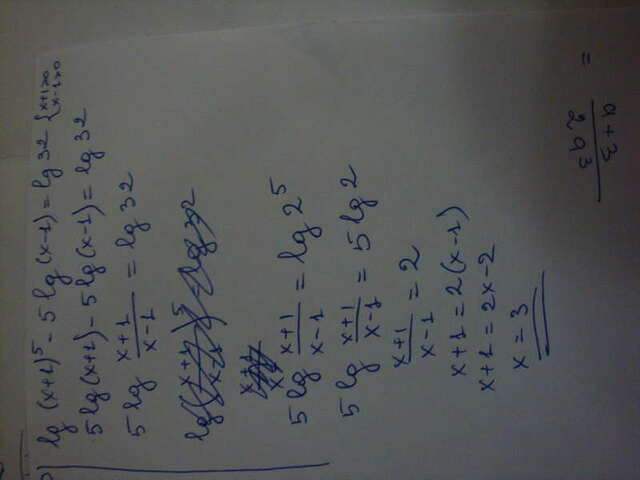 lg (x+1)^5 - 5 lg (x-1) = lg 32 { x+1>0 x-1>0
5 lg (x+1) - 5 lg (x-1) = lg 32
5 lg (x+1)/(x-1) = lg 32
5 lg (x+1)/(x-1) = lg 2^5
5 lg (x+1)/(x-1) = 5 lg 2
(x+1)/(x-1) = 2
x+1 = 2(x-1)
x+1 = 2x-2
x = 3
= (a+3)/(2a^3)